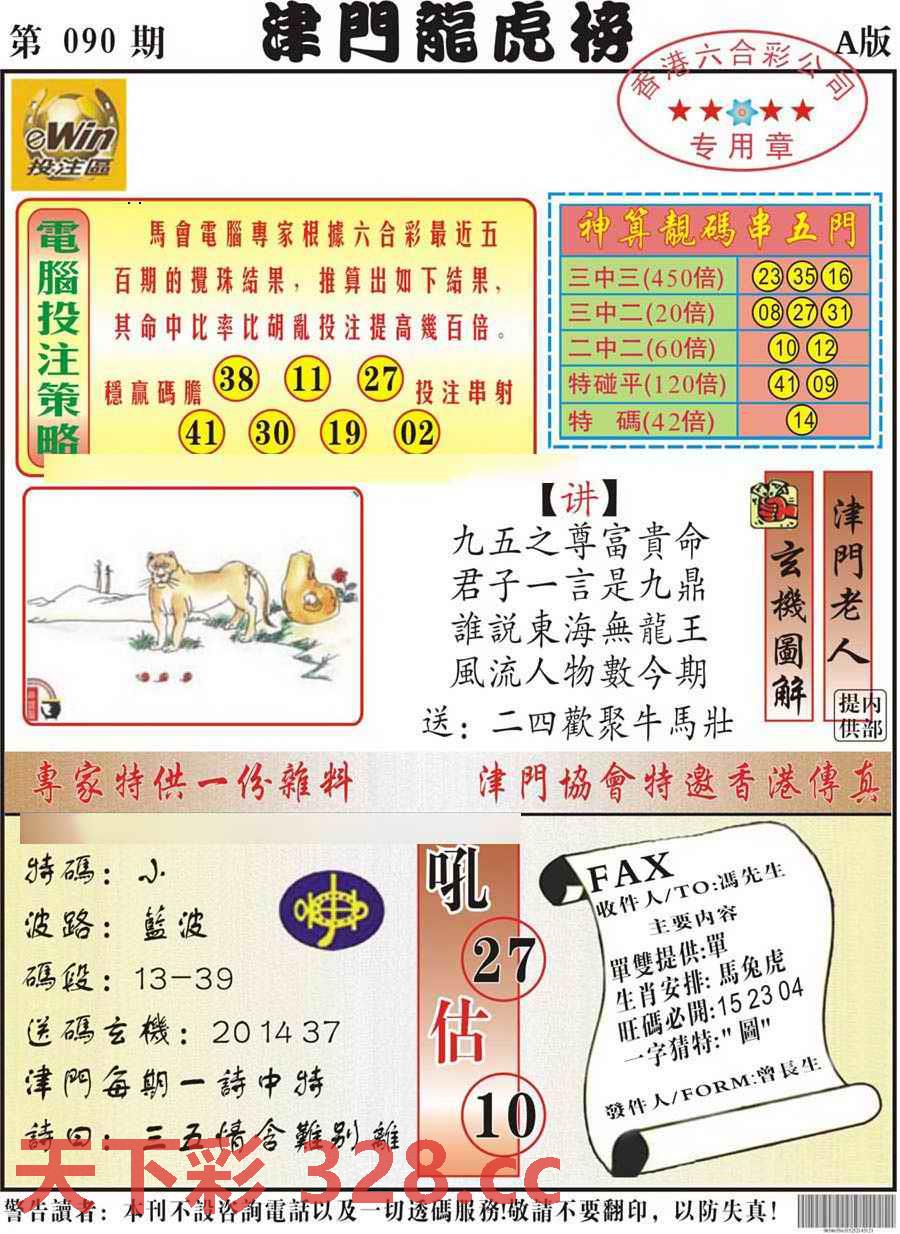 第 090 期
津門龍虎榜
A版
香港六合彩公司
专用章
eWin
投注區
電腦投注策略
馬會電腦專家根據六合彩最近五
百期的攪珠結果，推算出如下結果，
其命中比率比胡亂投注提高幾百倍。
穩贏碼膽 38 11 27 投注串射
41 30 19 02
神算靚碼串五門
三中三(450倍) 23 35 16
三中二(20倍) 08 27 31
二中二(60倍) 10 12
特碰平(120倍) 41 09
特 碼(42倍) 14
【讲】
九五之尊富貴命
君子一言是九鼎
誰説東海無龍王
風流人物數今期
送：二四歡聚牛馬壯
玄機圖解
津門老人
提供
内部
專家特供一份雜料
津門協會特邀香港傳真
特碼：小
波路：藍波
碼段：13-39
送碼玄機：20 14 37
津門每期一詩中特
詩曰：三五情含難别離
吼
27
估
10
FAX
收件人/TO:馮先生
主要内容
單雙提供:單
生肖安排: 馬兔虎
旺碼必開:15 23 04
一字猜特:"圖"
發件人/FORM:曾長生
天下彩 328.cc
警告讀者：本刊不設咨詢電話以及一切透碼服務!敬請不要翻印，以防失真！